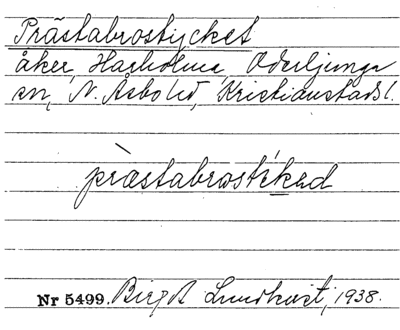 Prästabrostycket
åker, Harholma, Oderljunga
sn, N. Åsbo hd, Kristianstads l.
pràstabrostékəd
Nr 5499. Birgit Lundkvist, 1938.